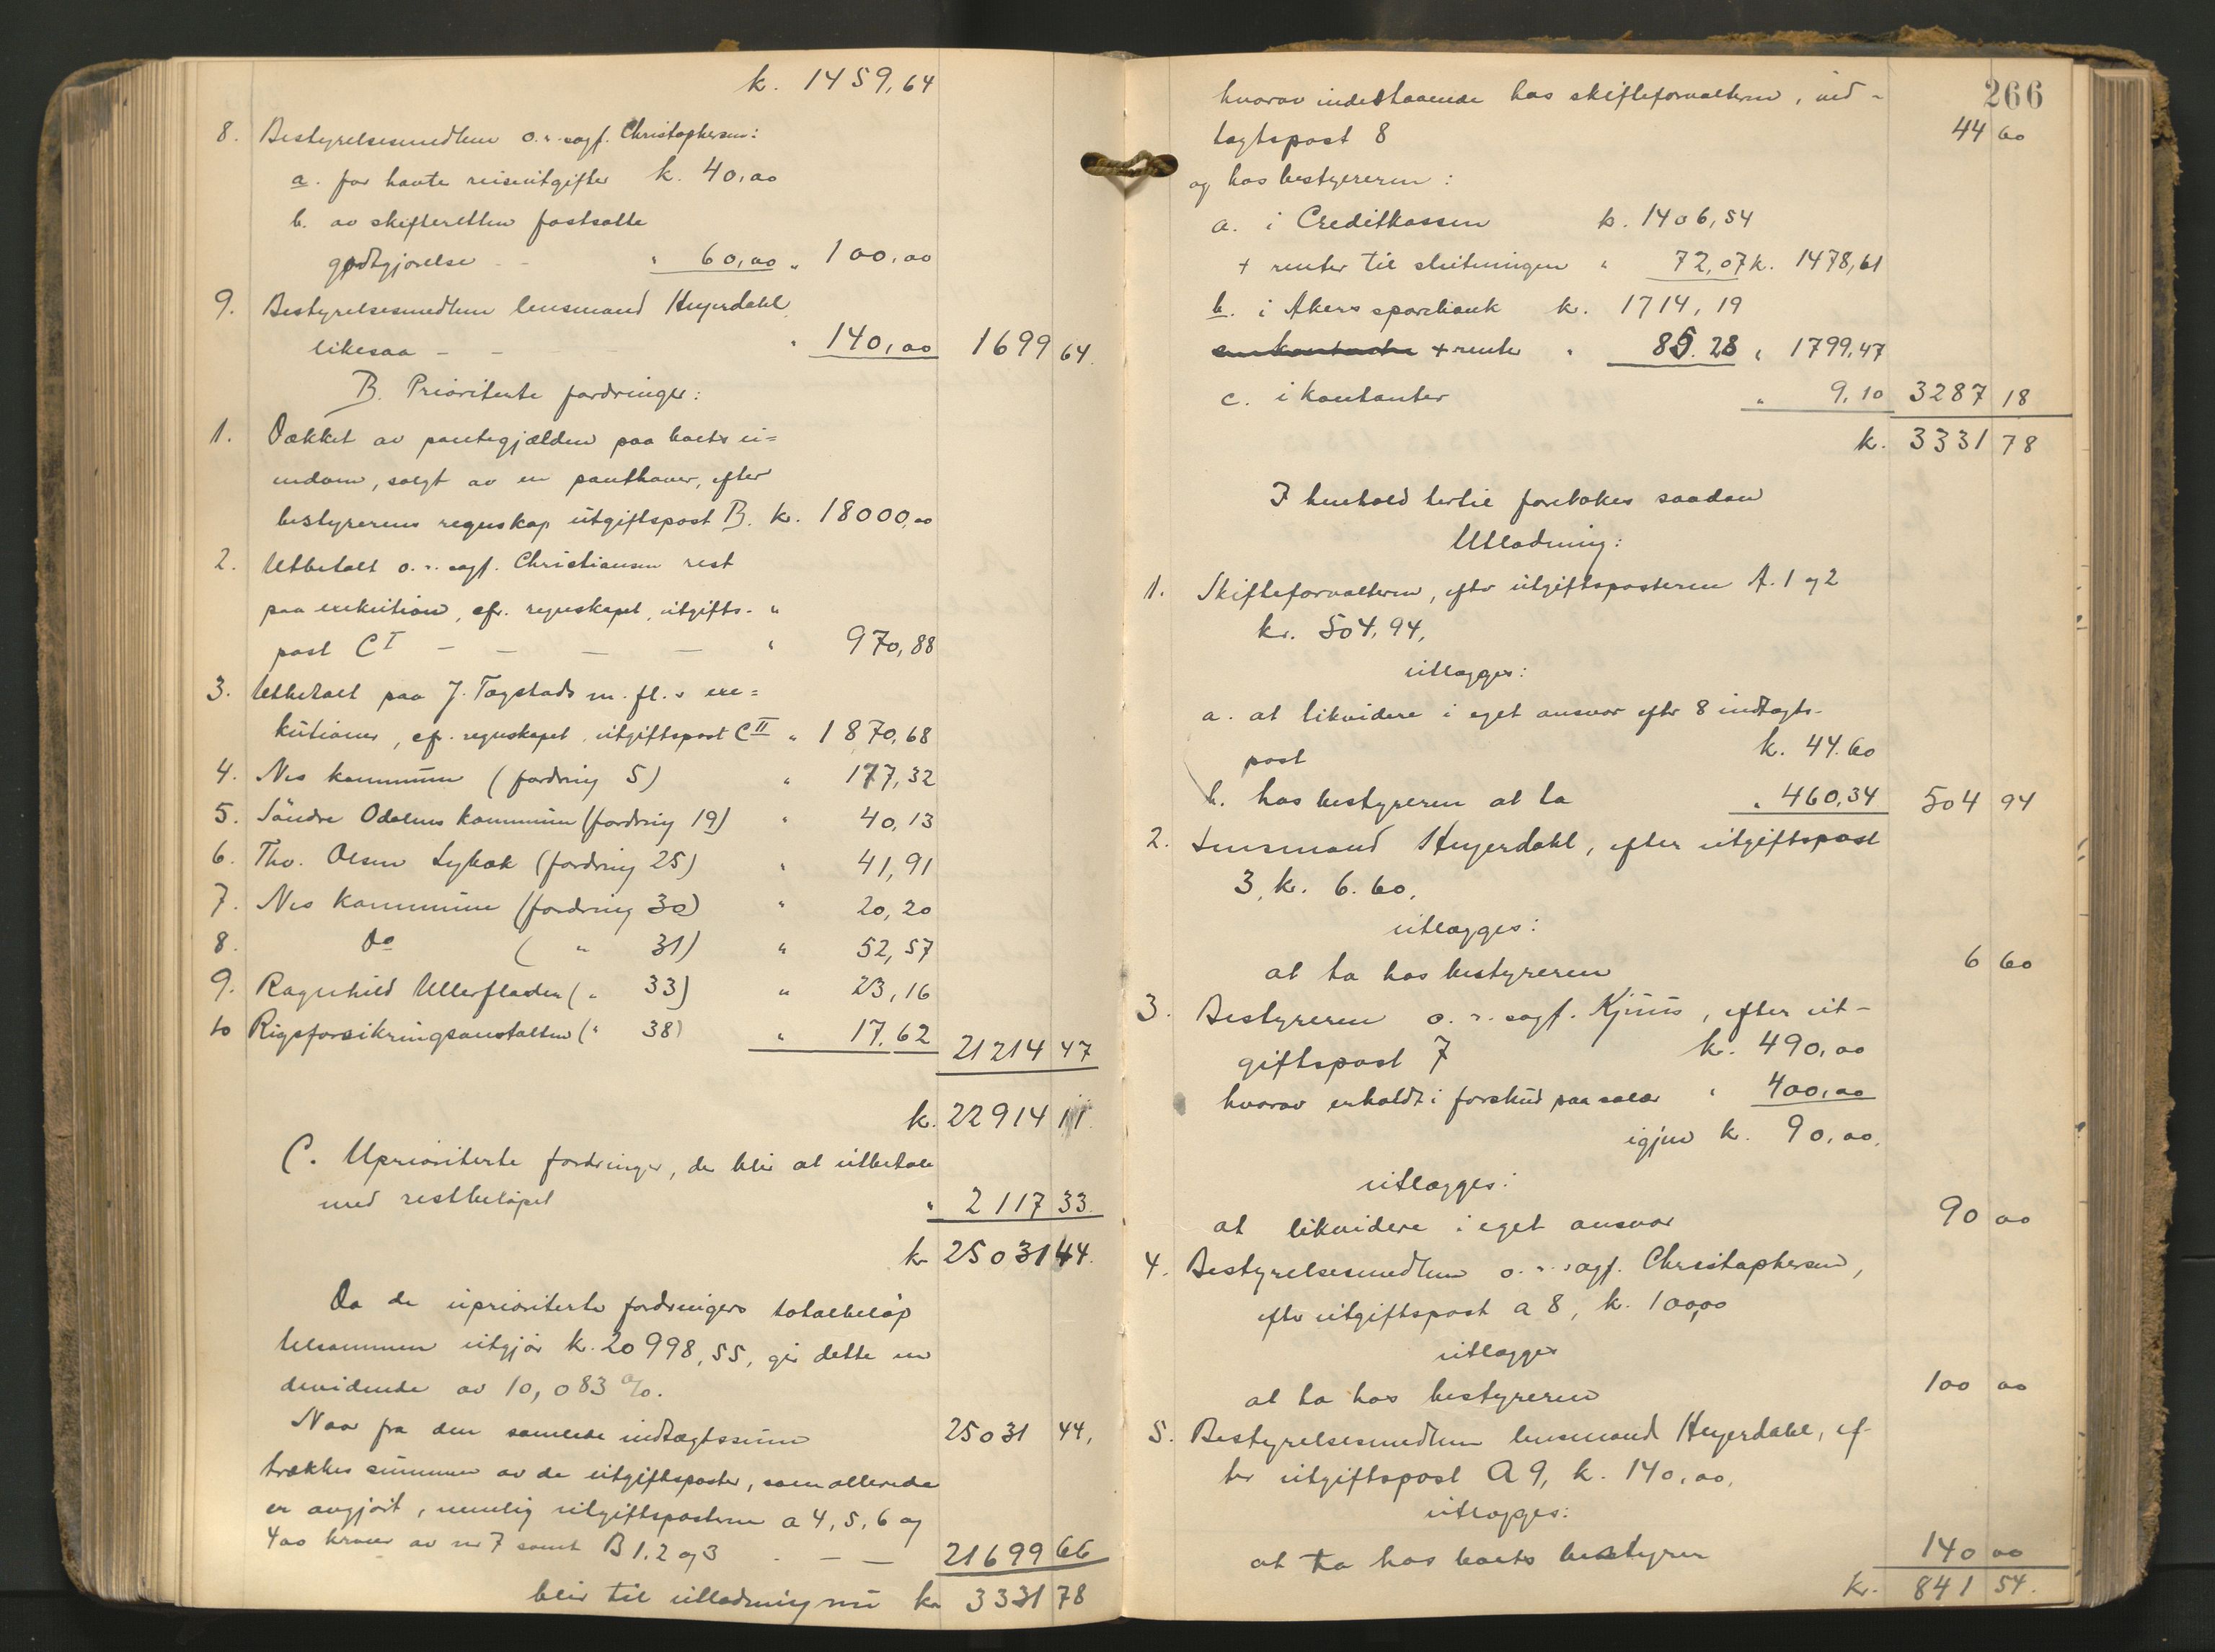 k. 1459,64
8. Bestyrelsesmedlem o.r.sagf. Christophersen:
a. for havte reiseutgifter k. 40,00
b. av skifteretten fastsatte
godtgjørelse - - " 60,00 " 100,00
9. Bestyrelsesmedlem lensmand Heyerdahl
likesaa - - " 140,00 1699 64.
B. Prioriterte fordringer:
1. Dækket av pantegjælden paa boets ei=
endom, solgt av en panthaver, efter
bestyrerens regnskap utgiftspost B. kr. 18000,00
2. Utbetalt o.r.sagf. Christiansen rest
paa exekution, cfr. regnskapet, utgifts- "
post C I - - - - " 970,88
3. Utbetalt paa J. Tagstads m.fl.s exe=
kutioner, cfr. regnskapet, utgiftspost C II " 1870,68
4. Nes kommune (fordring 5) " 177,32
5. Søndre Odalens kommune (fordring 19) " 40,13
6. Thv. Olsen (fordring 25) " 41,91
7. Nes kommune (fordring 30) " 20,20
8. Do ( " 31) " 52,57
9. Ragnhild Ullerfladen ( " 33) " 23,16
10 Rigsforsikringsanstalten ( " 38) " 17,62 21214 47
k. 22914 11.
C. Uprioriterte fordringer, der blir at utbetale
med restbeløpet " 2117 33.
kr 25031 44.
Da de uprioriterte fordringers totalbeløp
tilsammen utgjør k. 20998,55, gir dette en
dividende av 10,083 %.
Naar fra den samlede indtægtssum 25031 44,
trækkes summen av de utgiftsposter, som allerede
er avgjort, nemlig utgiftsposterne a 4, 5, 6 og
400 kroner av nr 7 samt B 1, 2 og 3 - - - 21699 66
blir til utlodning nu kr 3331 78
266
hvorav indestaaende hos skifteforvalteren, ind-
tægtspost 8 44 60
og hos bestyreren:
a. i Creditkassen k. 1406,54
+ renter til slutningen " 72,07 k. 1478,61
b. i Akers sparebank k. 1714,19
+ renter " 85.28 " 1799,47
c. i kontanter " 9,10 3287 18
k. 3331 78
I henhold hertil foretokes saadan
Utlodning:
1. Skifteforvalteren, efter utgiftsposterne A. 1 og 2
kr. 504,94,
utlægges:
a. at likvidere i eget ansvar efter 8 indtægts-
post k. 44.60
b. hos bestyreren at ta " 460,34 504 94
2. Lensmand Heyerdahl, efter utgiftspost
3, k. 6.60,
utlægges:
at ta hos bestyreren 6 60
3. Bestyreren o.r.sagf. Kjuus, efter ut-
giftspost 7 kr. 490,00
hvorav erholdt i forskud paa salær " 400,00
igjen k. 90,00,
utlægges:
at likvidere i eget ansvar 90 00
4. Bestyrelsesmedlem o.r.sagf. Christophersen,
efter utgiftspost a 8, k. 100,00
utlægges
at ta hos bestyreren 100 00
5. Bestyrelsesmedlem lensmand Heyerdahl, ef-
ter utgiftspost A 9, k. 140,00,
utlægges:
at ta hos boets bestyrer 140 00
kr. 841 54.